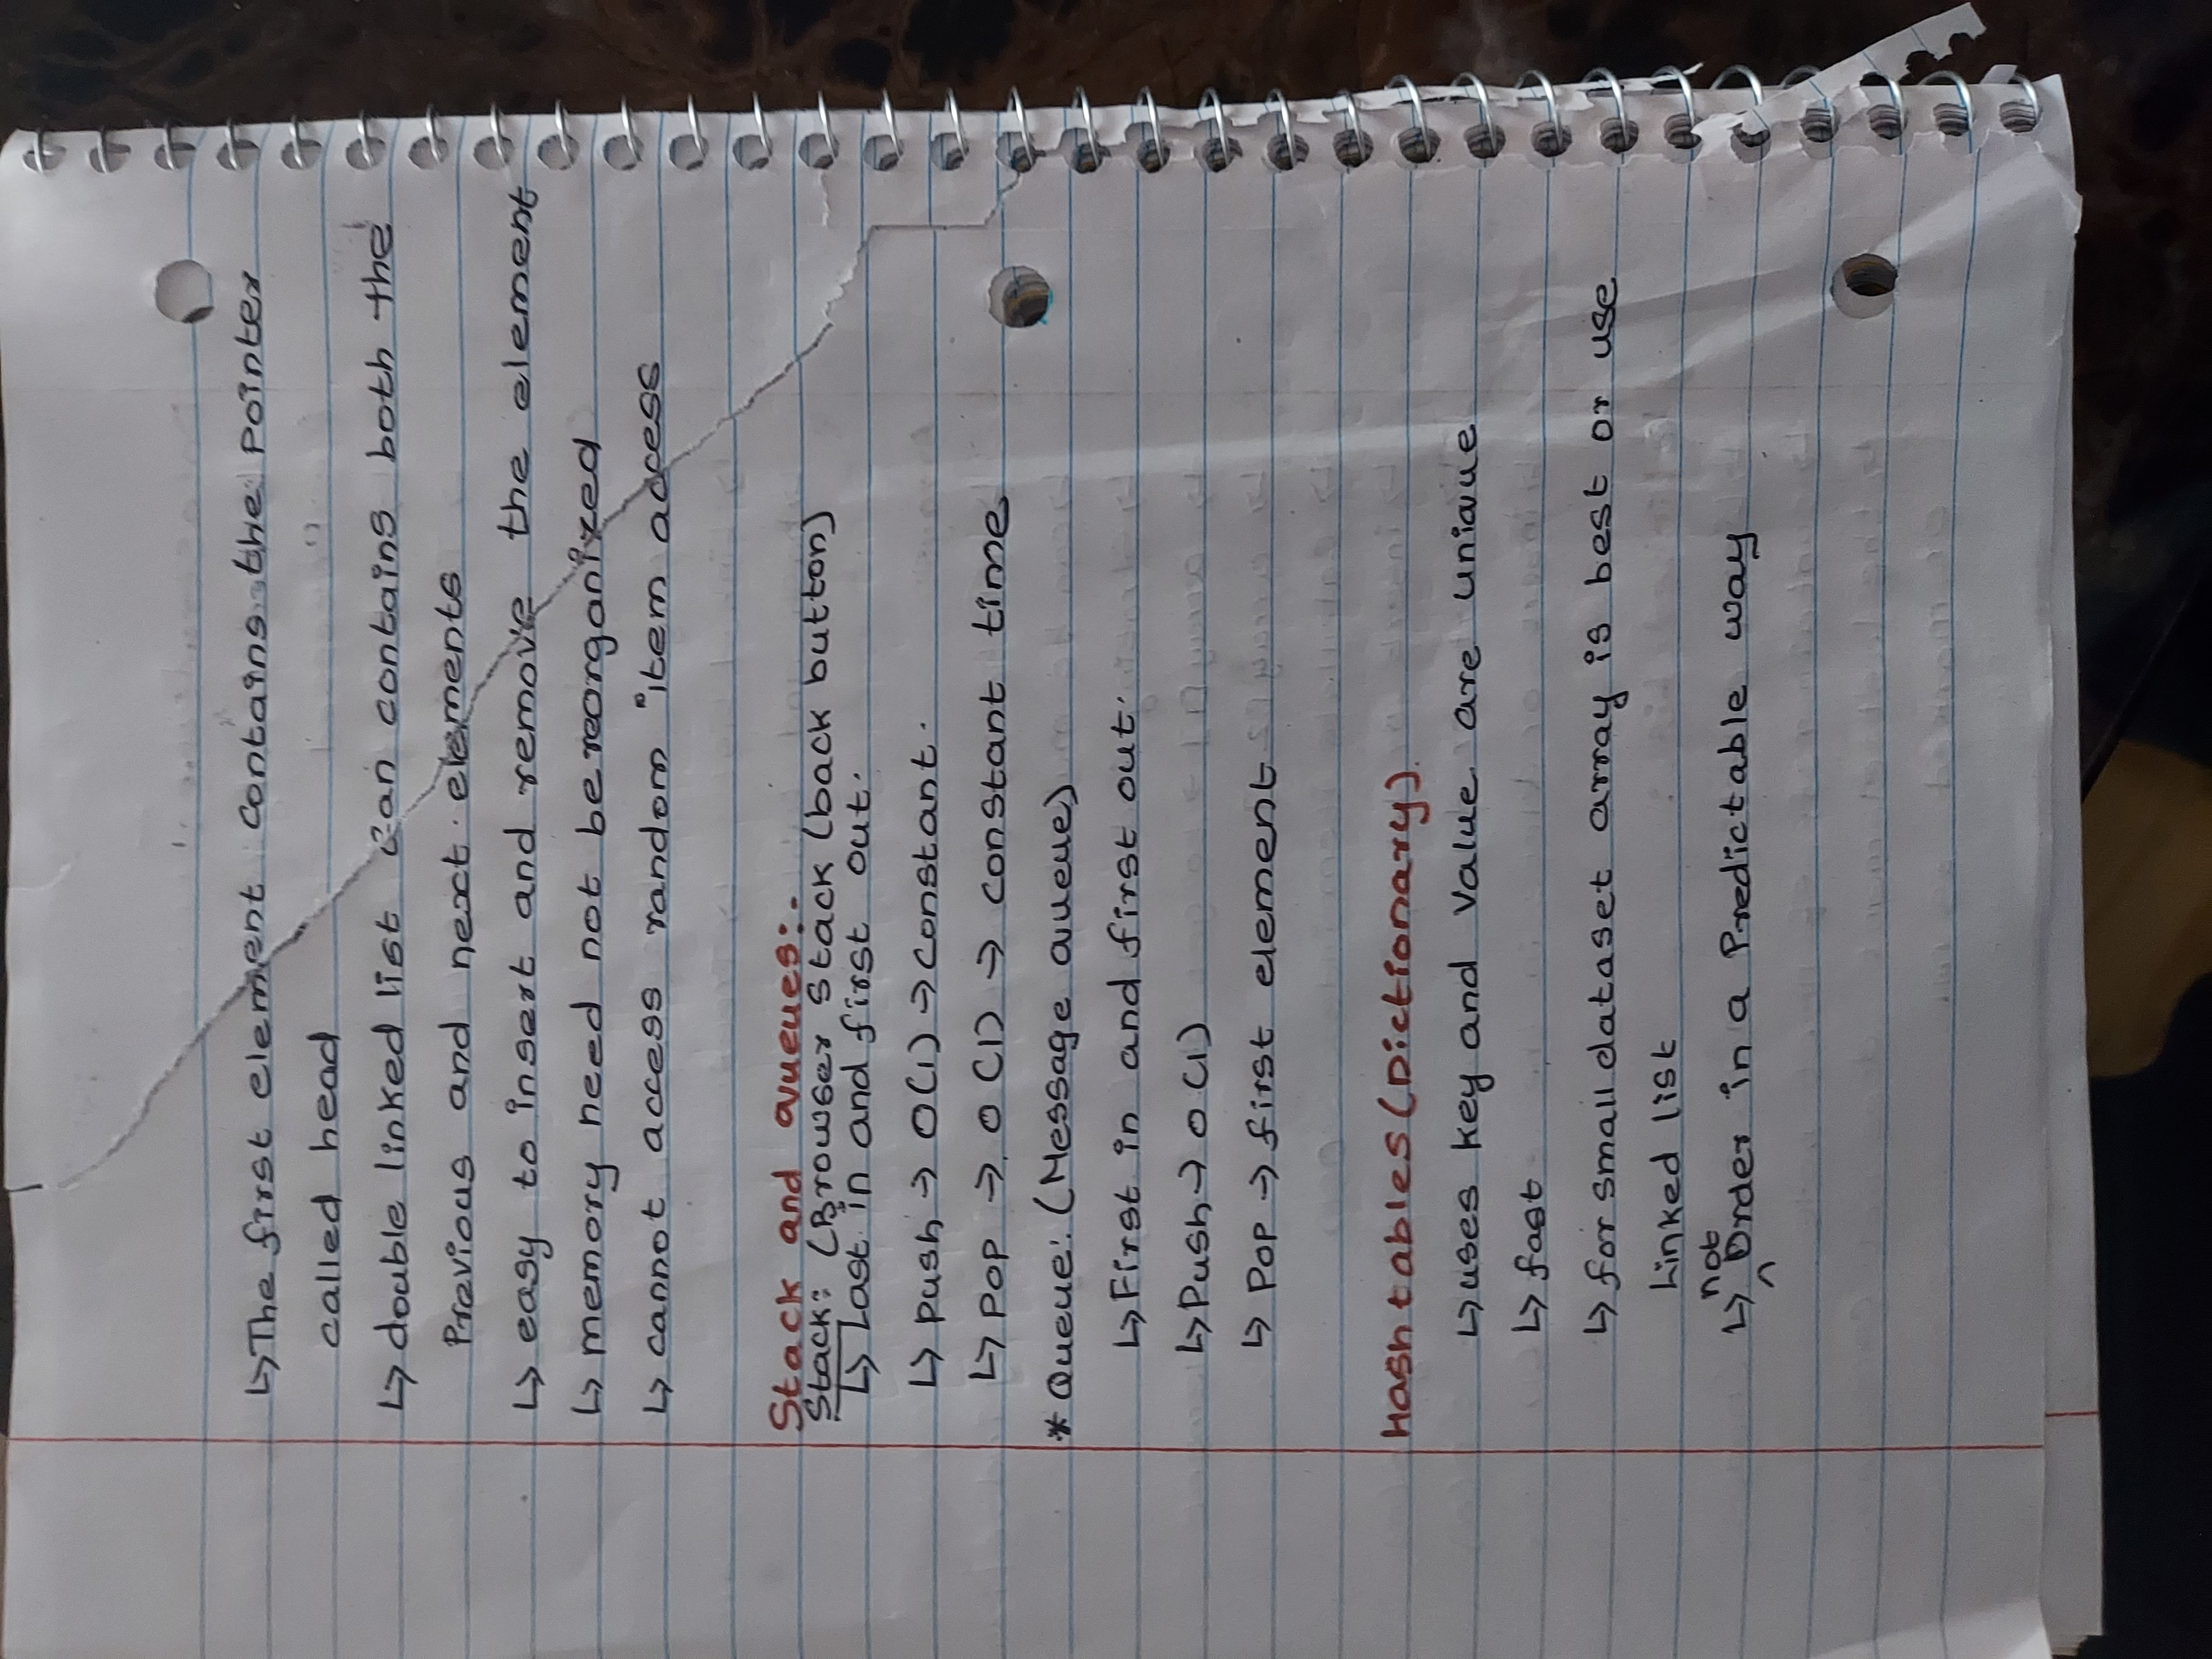 ↳ The first element contains the pointer
called head
↳ double linked list can contains both the
Previous and next elements
↳ easy to insert and remove the element
↳ memory need not be reorganized
↳ cannot access random item access
Stack and queues:-
Stack: (Browser Stack (back button)
↳ Last in and first out.
↳ push → O(1) → constant.
↳ pop → O(1) → constant time
* Queue: (Message queue)
↳ First in and first out.
↳ Push → O(1)
↳ Pop → first element
Hash tables (Dictionary).
↳ uses key and value are unique
↳ fast
↳ for small dataset array is best or use
Linked list
not
↳ ^ Order in a Predictable way